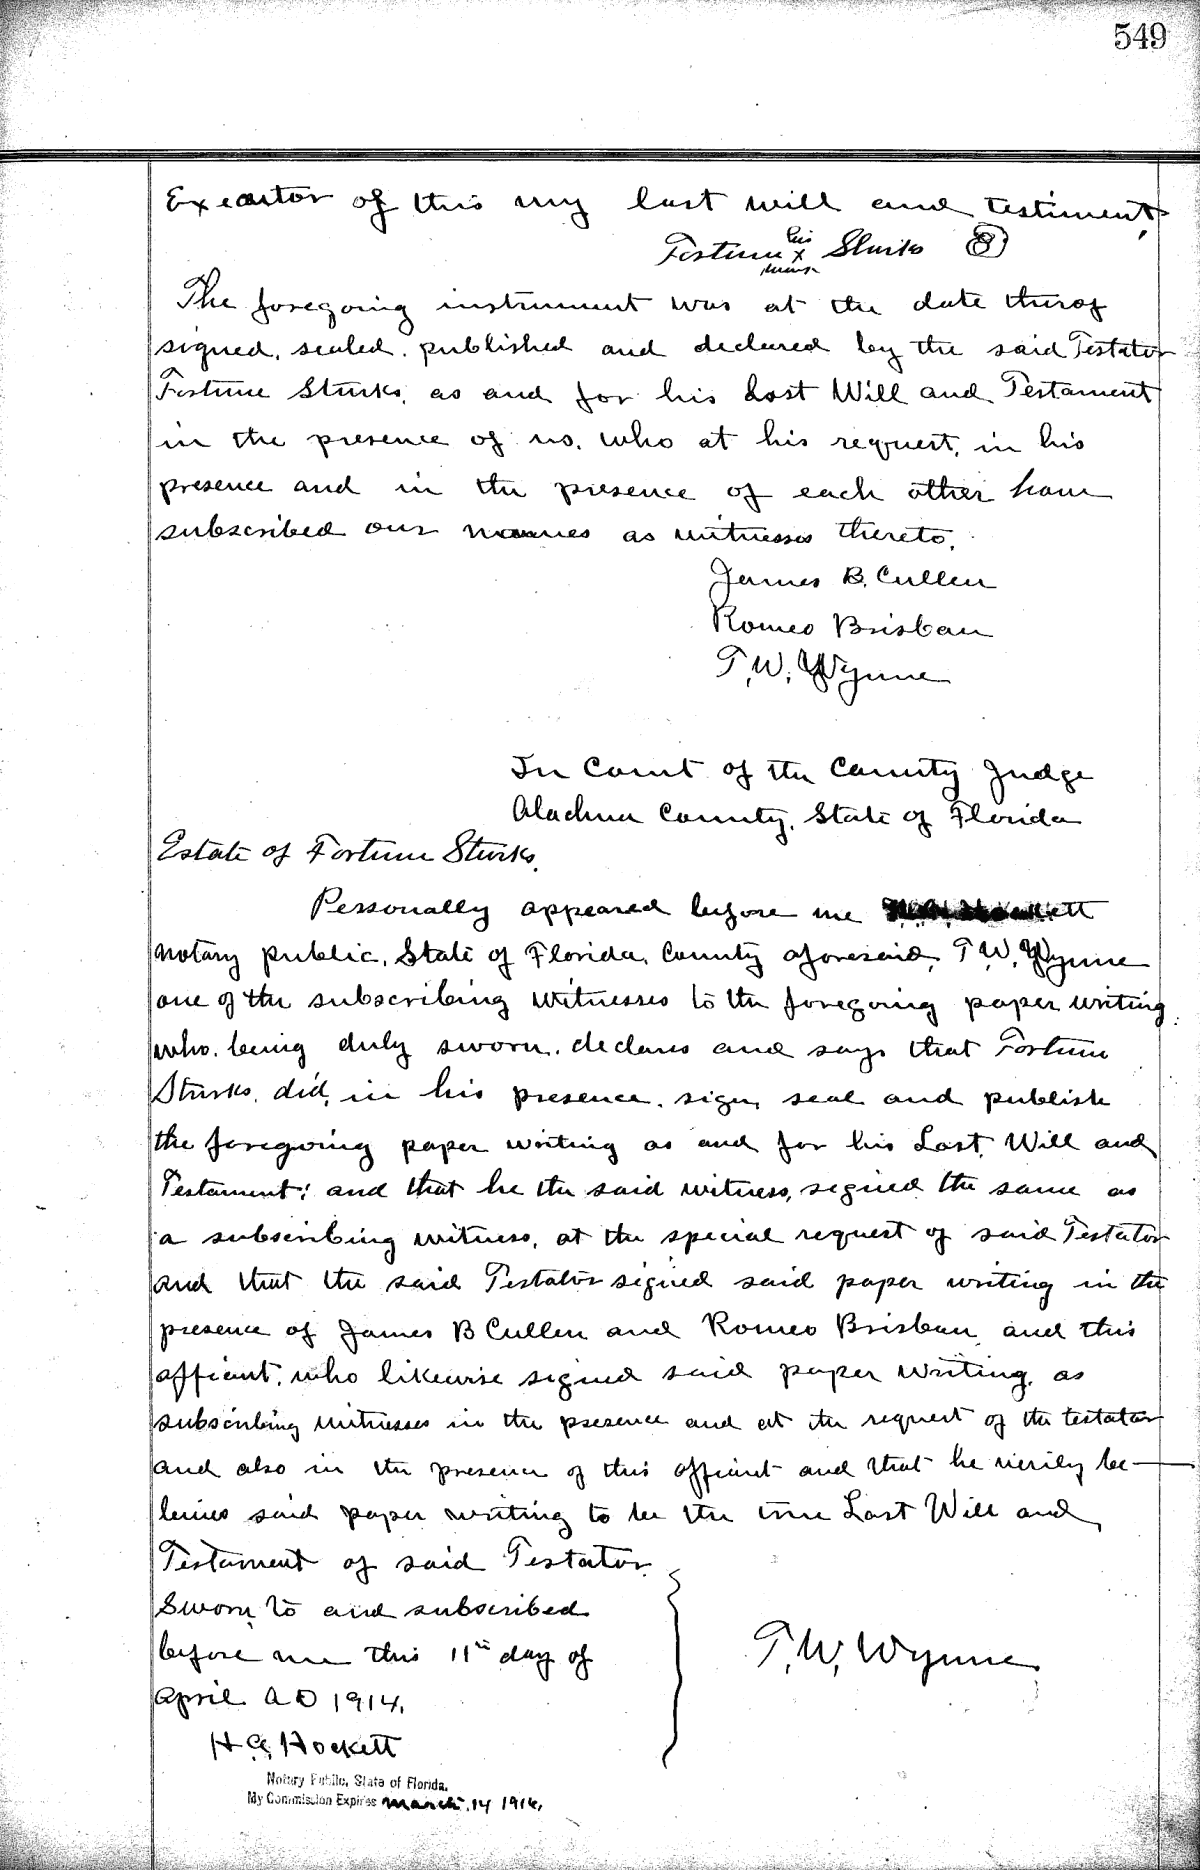 549
Executor of this my last will and testiment,
his
Fortune x Sturks (S)
mark
The foregoing instrument was at the date therof
signed, sealed, published and declared by the said Testator
Fortune Sturks, as and for his Last Will and Testament
in the presence of us, who at his request, in his
presence and in the presence of each other have
subscribed our names as witnesses thereto.
James B. Cullen
Romeo Brisban
T. W. Wynne
In Court of the County Judge
Alachua County, State of Florida
Estate of Fortune Sturks.
Personally appeared before me
Notary public, State of Florida, County aforesaid, T. W. Wynne
one of the subscribing witnesses to the foregoing paper writing
who, being duly sworn, declares and says that Fortune
Sturks, did, in his presence, sign, seal and publish
the foregoing paper writing as and for his Last Will and
Testament; and that he the said witness, signed the same as
a subscribing witness, at the special request of said Testator
and that the said Testator signed said paper writing in the
presence of James B Cullen and Romeo Brisban and this
affiant, who likewise signed said paper writing, as
subscribing witnesses in the presence and at the request of the testator
and also in the presence of this affiant and that he verily be-
lieves said paper writing to be the true Last Will and
Testament of said Testator.
Sworn to and subscribed
before me this 11th day of
April A D 1914.
T. W. Wynne
H. G. Hockett
Notary Public, State of Florida.
My Commission Expires March 14 1916.